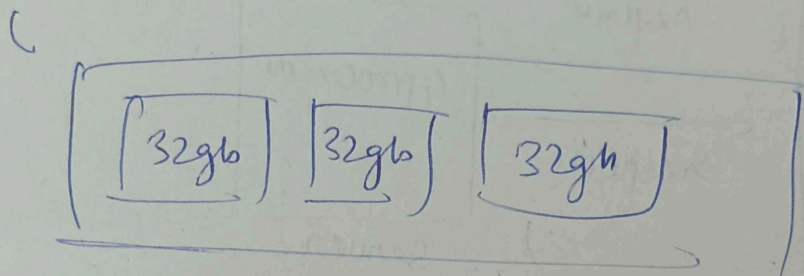 32gb 32gb 32gh